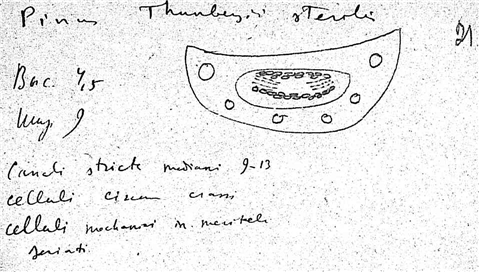 Pinus Thunbergii sterilis
21.
Bac. 4,5
9
Canali stricte mediani 9-13
celluli circum crassi
celluli mechanici in meristele
seriati.